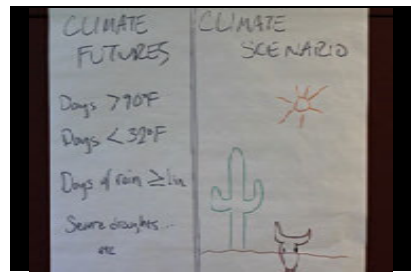 CLIMATE
FUTURES
Days >90°F
Days <32°F
Days of rain ≥1in
Severe droughts...
etc
CLIMATE
SCENARIO